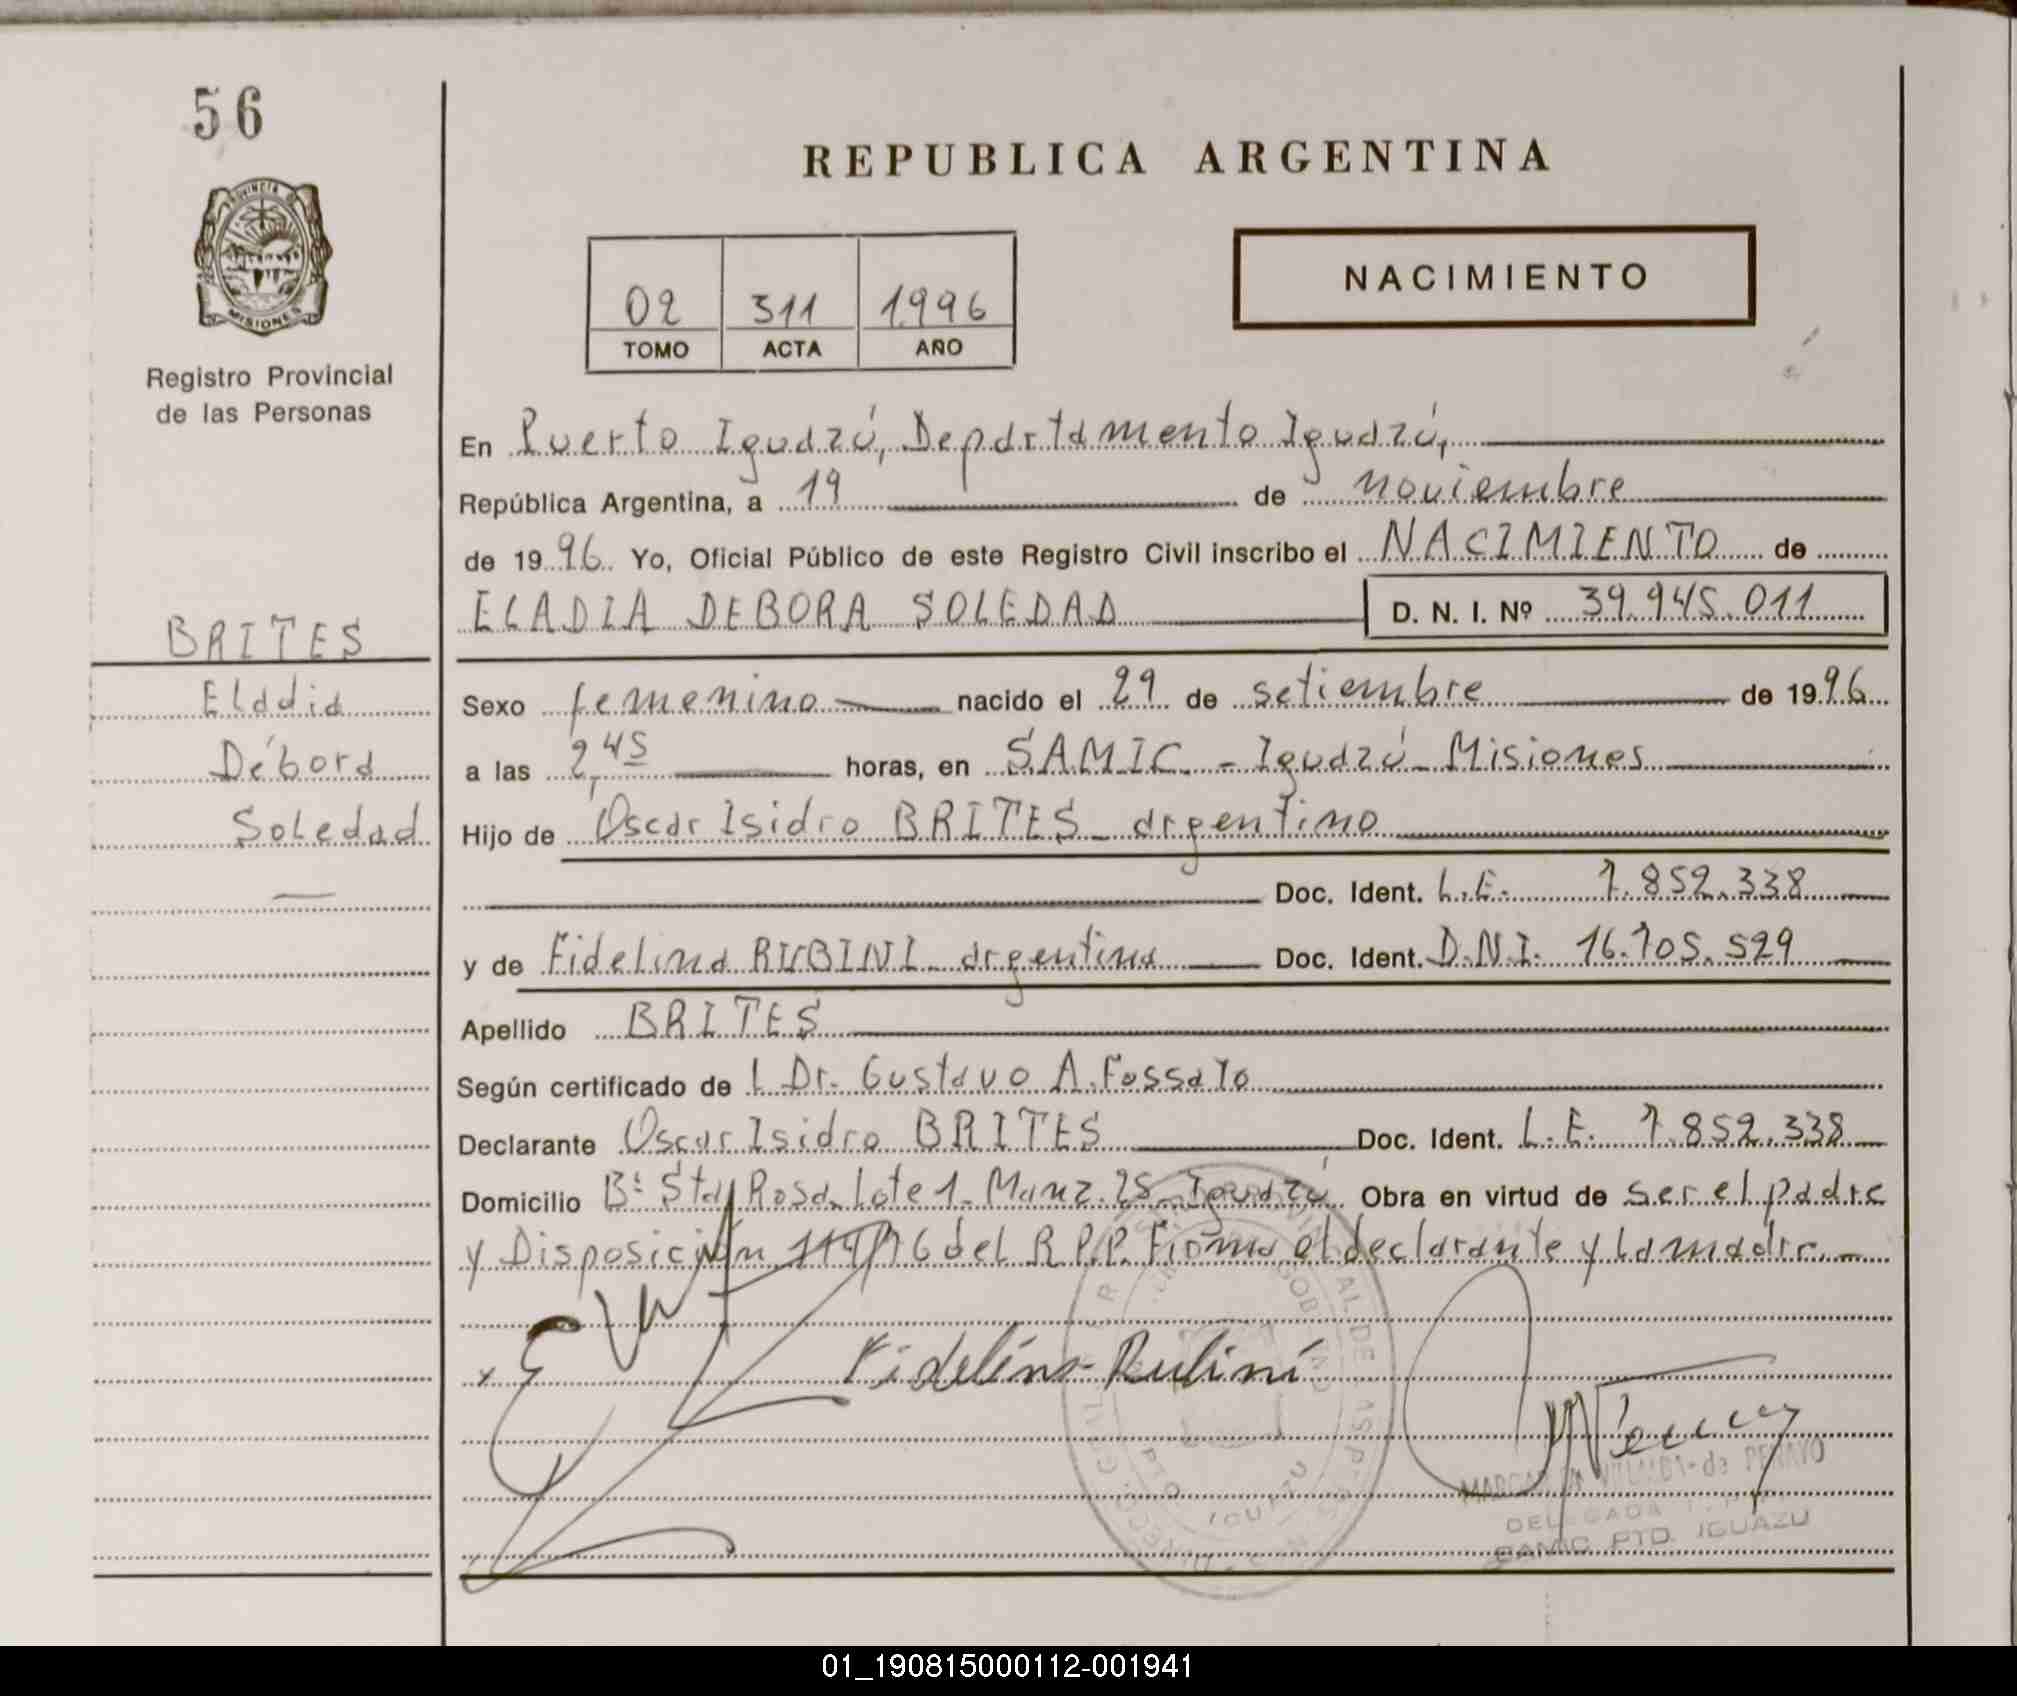 56
REPUBLICA ARGENTINA
PROVINCIA DE
MISIONES
Registro Provincial
de las Personas
02 311 1996
TOMO ACTA AÑO
NACIMIENTO
En Puerto Iguazú, Departamento Iguazú,
República Argentina, a 19 de noviembre
de 1996 Yo, Oficial Público de este Registro Civil inscribo el NACIMIENTO de
ELADIA DEBORA SOLEDAD D. N. I. Nº 39.945.011
BRITES
Eladia
Débora
Soledad
Sexo femenino nacido el 29 de setiembre de 1996
a las 2,45 horas, en SAMIC - Iguazú - Misiones
Hijo de Oscar Isidro BRITES - argentino
Doc. Ident. L.E. 7.852.338
y de Fidelina RUBINI - argentina Doc. Ident. D.N.I. 16.705.529
Apellido BRITES
Según certificado de l Dr. Gustavo A. Fossato
Declarante Oscar Isidro BRITES Doc. Ident. L.E. 7.852.338
Domicilio Bº Sta Rosa - Lote 1 - Manz. 25 - Iguazú Obra en virtud de ser el padre
y Disposición 114/96 del R.P.P. Firma el declarante y la madre. -
Fidelina Rubini
de PENAYO
DELEGADA
SAMIC PTO. IGUAZU
01_190815000112-001941